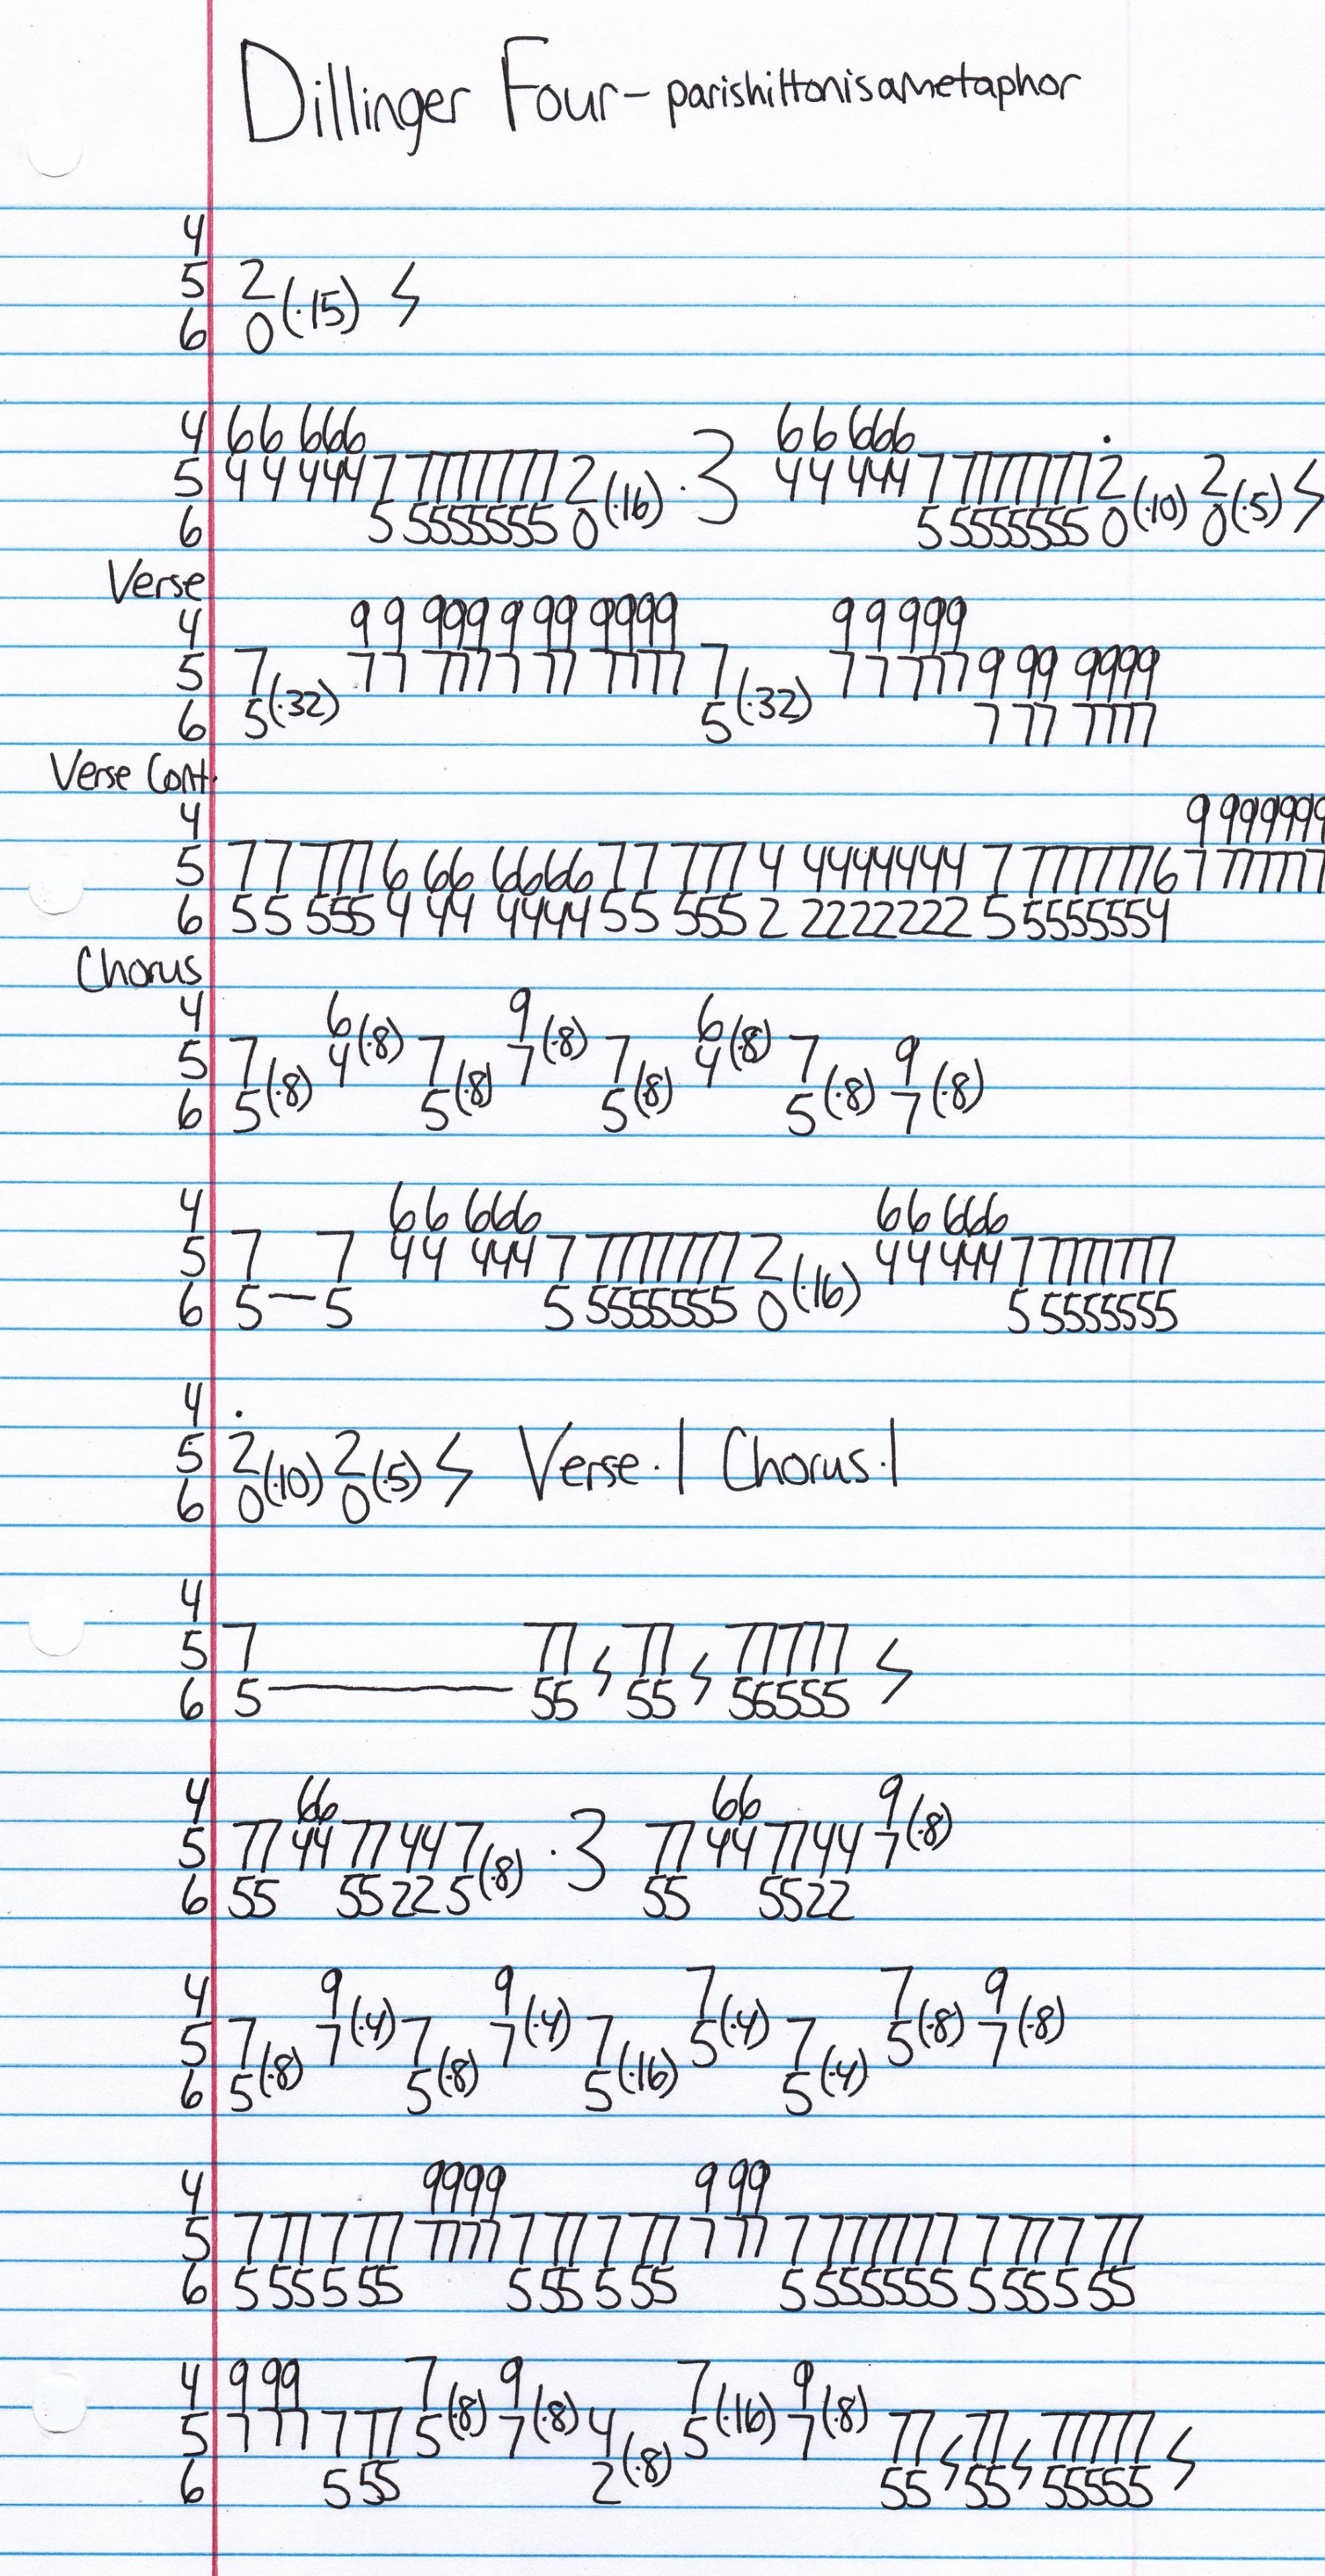 Dillinger Four - parishiltonisametaphor
4
5 2
6 0 (·15) ϟ
4 66 666 66 666 .
5 44 444 7 7777777 2 (·16) ·3 44 444 7 7777777 2 (·10) 2 (·5) ϟ
6 5 5555555 0 5 5555555 0 0
Verse
4 99 999 9 99 9999 99 999
5 7 (·32) 77 777 7 77 7777 7 (·32) 77 777 9 99 9999
6 5 5 7 77 7777
Verse Cont.
4 9 999999
5 77 777 6 66 6666 77 777 4 4444444 7 7777776 7 777777
6 55 555 4 44 4444 55 555 2 2222222 5 5555554
Chorus
4 6 (·8) 9 (·8) 6 (·8)
5 7 (·8) 4 7 (·8) 7 7 (·8) 4 7 (·8) 9 (·8)
6 5 5 5 5 7
4 66 666 66 666
5 7 7 44 444 7 7777777 2 (·16) 44 444 7 7777777
6 5 — 5 5 5555555 0 5 5555555
4 .
5 2 (·10) 2 (·5) ϟ Verse·1 Chorus·1
6 0 0
4
5 7 77 ϟ 77 ϟ 77777 ϟ
6 5 — 55 55 55555
4 66 66 9 (·8)
5 77 44 77 44 7 (·8) ·3 77 44 77 44 7
6 55 55 22 5 55 55 22
4 9 (·4) 9 (·4) 7 (·4) 7 (·8) 9 (·8)
5 7 (·8) 7 7 (·8) 7 7 (·16) 5 7 (·4) 5 7
6 5 5 5 5
4 9999 9 99
5 7 77 7 77 7777 7 77 7 77 7 77 7 777777 7 77 7 77
6 5 55 5 55 5 55 5 55 5 555555 5 55 5 55
4 9 99 7 (·8) 9 (·8) 7 (·16) 9 (·8)
5 7 77 7 77 5 7 4 (·8) 5 7 77 ϟ 77 ϟ 77777 ϟ
6 5 55 2 55 55 55555